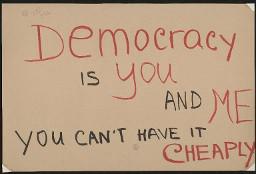 Democracy
IS you
AND ME
YOU CAN'T HAVE IT
CHEAPLY